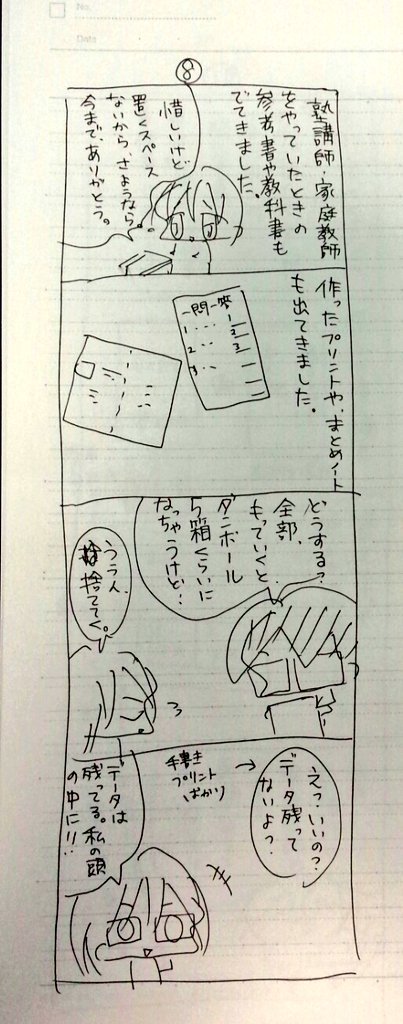 No.
Date
⑧
塾講師・家庭教師
をやっていたときの
参考書や教科書も
でてきました。
惜しいけど
置くスペース
ないから、さようなら。
今まで、ありがとう。
作ったプリントや、まとめノート
も出てきました。
一問一答
1
2
3
1
2
3
どうする?
全部、
もっていくと、
ダンボール
5箱くらいに
なっちゃうけど…
ううん、
捨ててく。
えっ、いいの?
データ残って
ないよ?
手書き
プリント
ばかり
データは
残ってる。私の頭
の中に!!